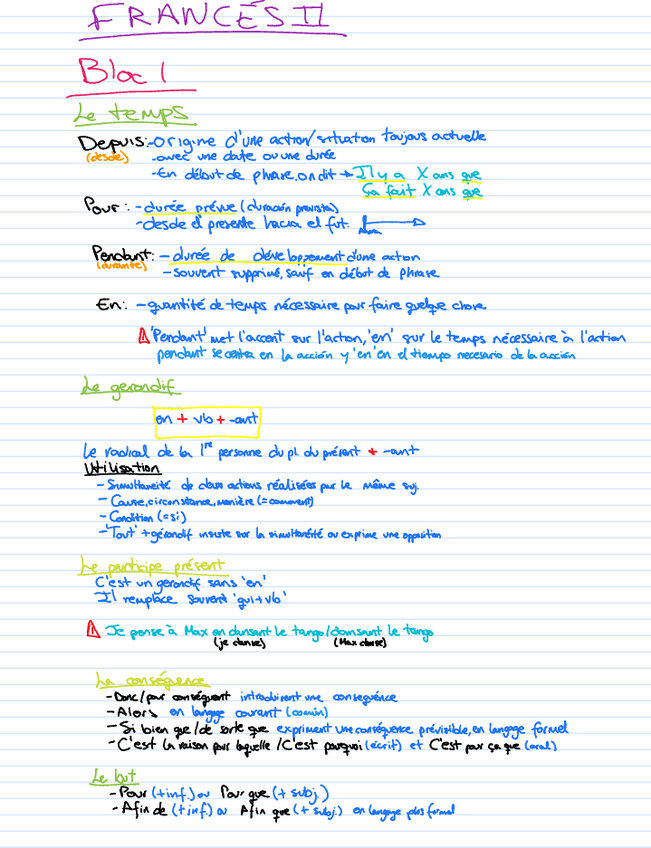 FRANCÉS II
Bloc 1
Le temps
Depuis: - Origine d'une action/situation toujours actuelle
(desde) - avec une date ou une durée
- En début de phrase, on dit → Il y a X ans que
Ça fait X ans que
Pour: - durée prévue (duración prevista)
- desde el presente hacia el fut.
Pendant: - durée de développement d'une action
(durante) - souvent supprimé, sauf en début de phrase
En: - quantité de temps nécessaire pour faire quelque chose
⚠ 'Pendant' met l'accent sur l'action, 'en' sur le temps nécessaire à l'action
pendant se centra en la acción y 'en' en el tiempo necesario de la acción
Le gerondif
en + vb + -ant
Le radical de la 1re personne du pl. du présent + -ant
Utilisation
- Simultaneité de deux actions réalisées par le même suj.
- Cause, circonstance, manière (= comment)
- Condition (= si)
- 'Tout' + gérondif insiste sur la simultanéité ou exprime une opposition
Le participe présent
C'est un gerondif sans 'en'
Il remplace souvent 'qui + vb'
⚠ Je pense à Max en dansant le tango/dansant le tango
(je danse) (Max danse)
La conséquence
- Donc/par conséquent introduisent une conséquence
- Alors en langage courant (común)
- Si bien que/de sorte que expriment une conséquence prévisible, en langage formel
- C'est la raison pour laquelle/C'est pourquoi (écrit) et C'est pour ça que (oral)
Le but
- Pour (+ inf.) ou Pour que (+ subj.)
- Afin de (+ inf.) ou Afin que (+ subj.) en langage plus formel